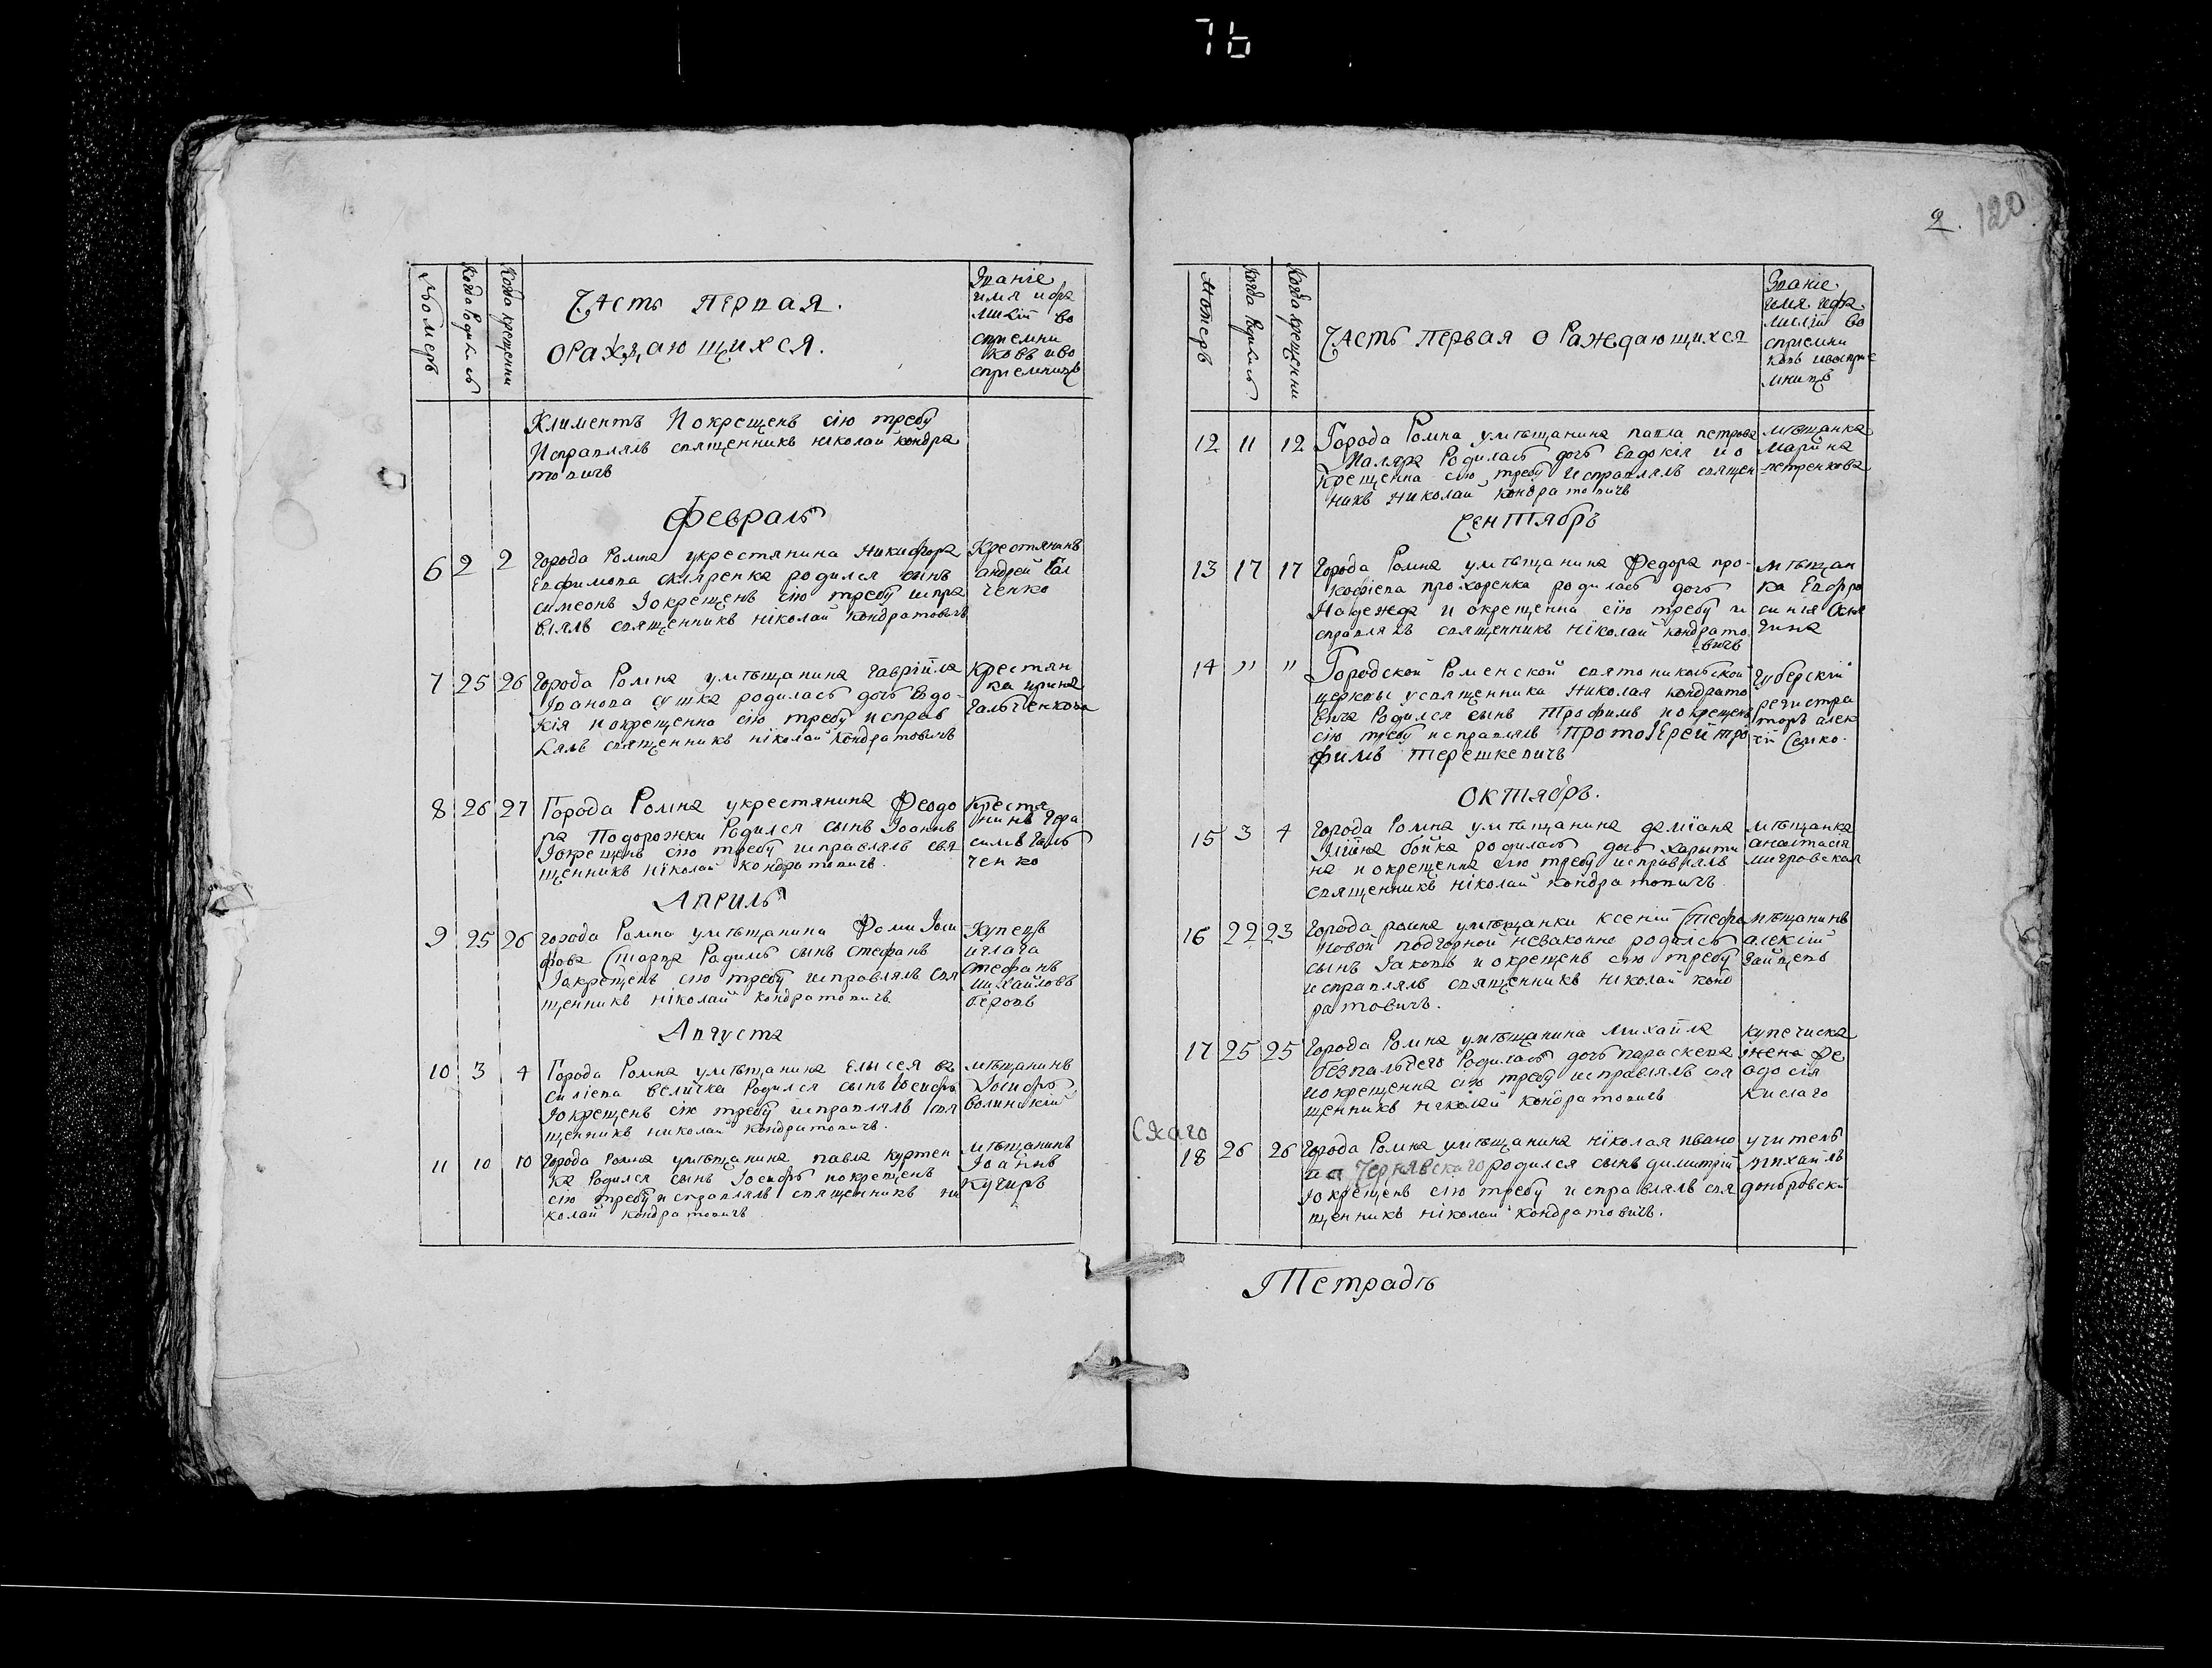 76
Номеръ
Когда Родились
Когда крещенны
Часть первая.
о раждающихся.
Званіе
имя и фа
милій во
сприемни
ковъ и во
сприемницъ
Климентъ И окрещенъ сію требу
Исправлялъ священникъ ніколай кондра
товичъ
Февраль
6 2 2
Города Ромна укрестянина Никифора
Евфимова скляренка родился сынъ
симеонъ Iокрещенъ сію требу испра
влялъ священникъ ніколай кондратовичъ
Крестянинъ
андрей Гал
ченко
7 25 26
Города Ромна умѣщанина гавріила
Iванова сушка родилась дочъ Евдо-
кія и окрещенна сію требу исправ
лялъ священникъ ніколай кондратовичъ
крестян
ка ирина
Гальченкова
8 26 27
Города Ромна укрестянина Феодо
ра Подорожки Родился сынъ Iоаннъ
Iокрещенъ сію требу исправлялъ свя
щенникъ ніколай кондратовичъ.
крестя
нинъ Гера
симъ Галь
ченко
Априль
9 25 26
города Ромна умѣщанина Фоми Iоси
фова Родилъ сынъ Стефанъ
Iокрещенъ сію требу исправлялъ свя
щенникъ ніколай кондратовичъ
Купецъ
Стефанъ
Михайловъ
Августа
10 3 4
Города Ромна умѣщанина Елисея ва
силіева величка Родился сынъ Iосифъ
Iокрещенъ сію требу исправлялъ свя
щенникъ николай кондратовичъ.
мѣщанинъ
Iосифъ
Волинскій
11 10 10
Города Ромна умѣщанина павла куртен
ка Родился сынъ Iосифъ и окрещенъ
сію требу исправлялъ священникъ ни
колай кондратовичъ
мѣщанинъ
Iоаннъ
Кучиръ
2. 120
Номеръ
Когда Родились
Когда крещенны
Часть первая о Раждающихся
Званіе
имя и фа
милій во
сприемни
ковъ и восприе
мницъ
12 11 12
Города Ромна умѣщанина павла петрова
Маляра Родилась дочъ Евдокія и о
крещенна сію требу исправлялъ священ
никъ Николай кондратовичъ
мѣщанка
марина
петренкова
Сентябръ
13 17 17
Города Ромна умѣщанина Федора про-
кофіева прохоренка родилась дочъ
Надежда и окрещенна сію требу и
справлялъ священникъ ніколай кондрато
вичъ
мѣщан
ка Евфро
синія
14 " "
Городской Роменской святониколской
церкви усвященника Николая кондрато
вича Родился сынъ Трофимъ и окрещенъ
сію требу исправлялъ протоІерей тро
фимъ терешкевичъ
губерскій
регистра
торъ алек
сій Семко.
Октябръ.
15 3 4
города Ромна умѣщанина даміана
Iліина бойка родилась дочъ харыти
на и окрещенна сію требу исправлялъ
священникъ ніколай кондратовичъ
мѣщанка
анастасія
мигровская
16 22 23
Города ромна умѣщанки ксеніи Стефа
новой подгорной незаконно роділсь
сынъ Iаковъ и окрещенъ сію требу
исправлялъ священникъ ніколай конд
ратовичъ.
мѣщанинъ
алексій
Зайцевъ
17 25 25
Города Ромна умѣщанина михаила
безпалчего Родилась дочъ параскева
и окрещенна сію требу исправлялъ свя
щенникъ ніколай кондратовичъ
купечиска
жена Фе
одосія
Кислаго
18 26 26
Города Ромна умѣщанина ніколая ивано
ва Чернявскаго родился сынъ димитрій
Iокрещенъ сію требу исправлялъ свя
щенникъ ніколай кондратовичъ.
учитель
михаилъ
домбровскій
скаго
Тетрадь